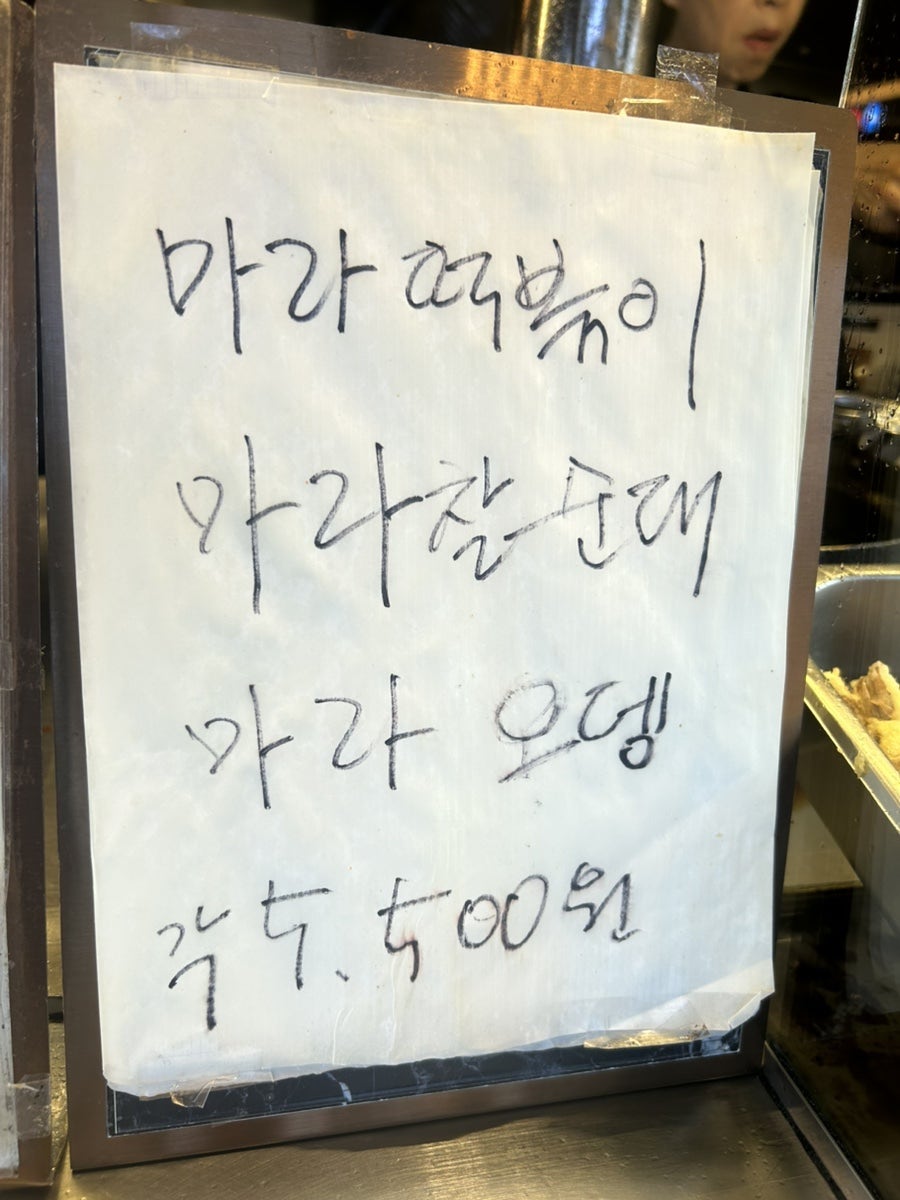 마라 떡볶이
마라찰순대
마라 오뎅
각 5.500원